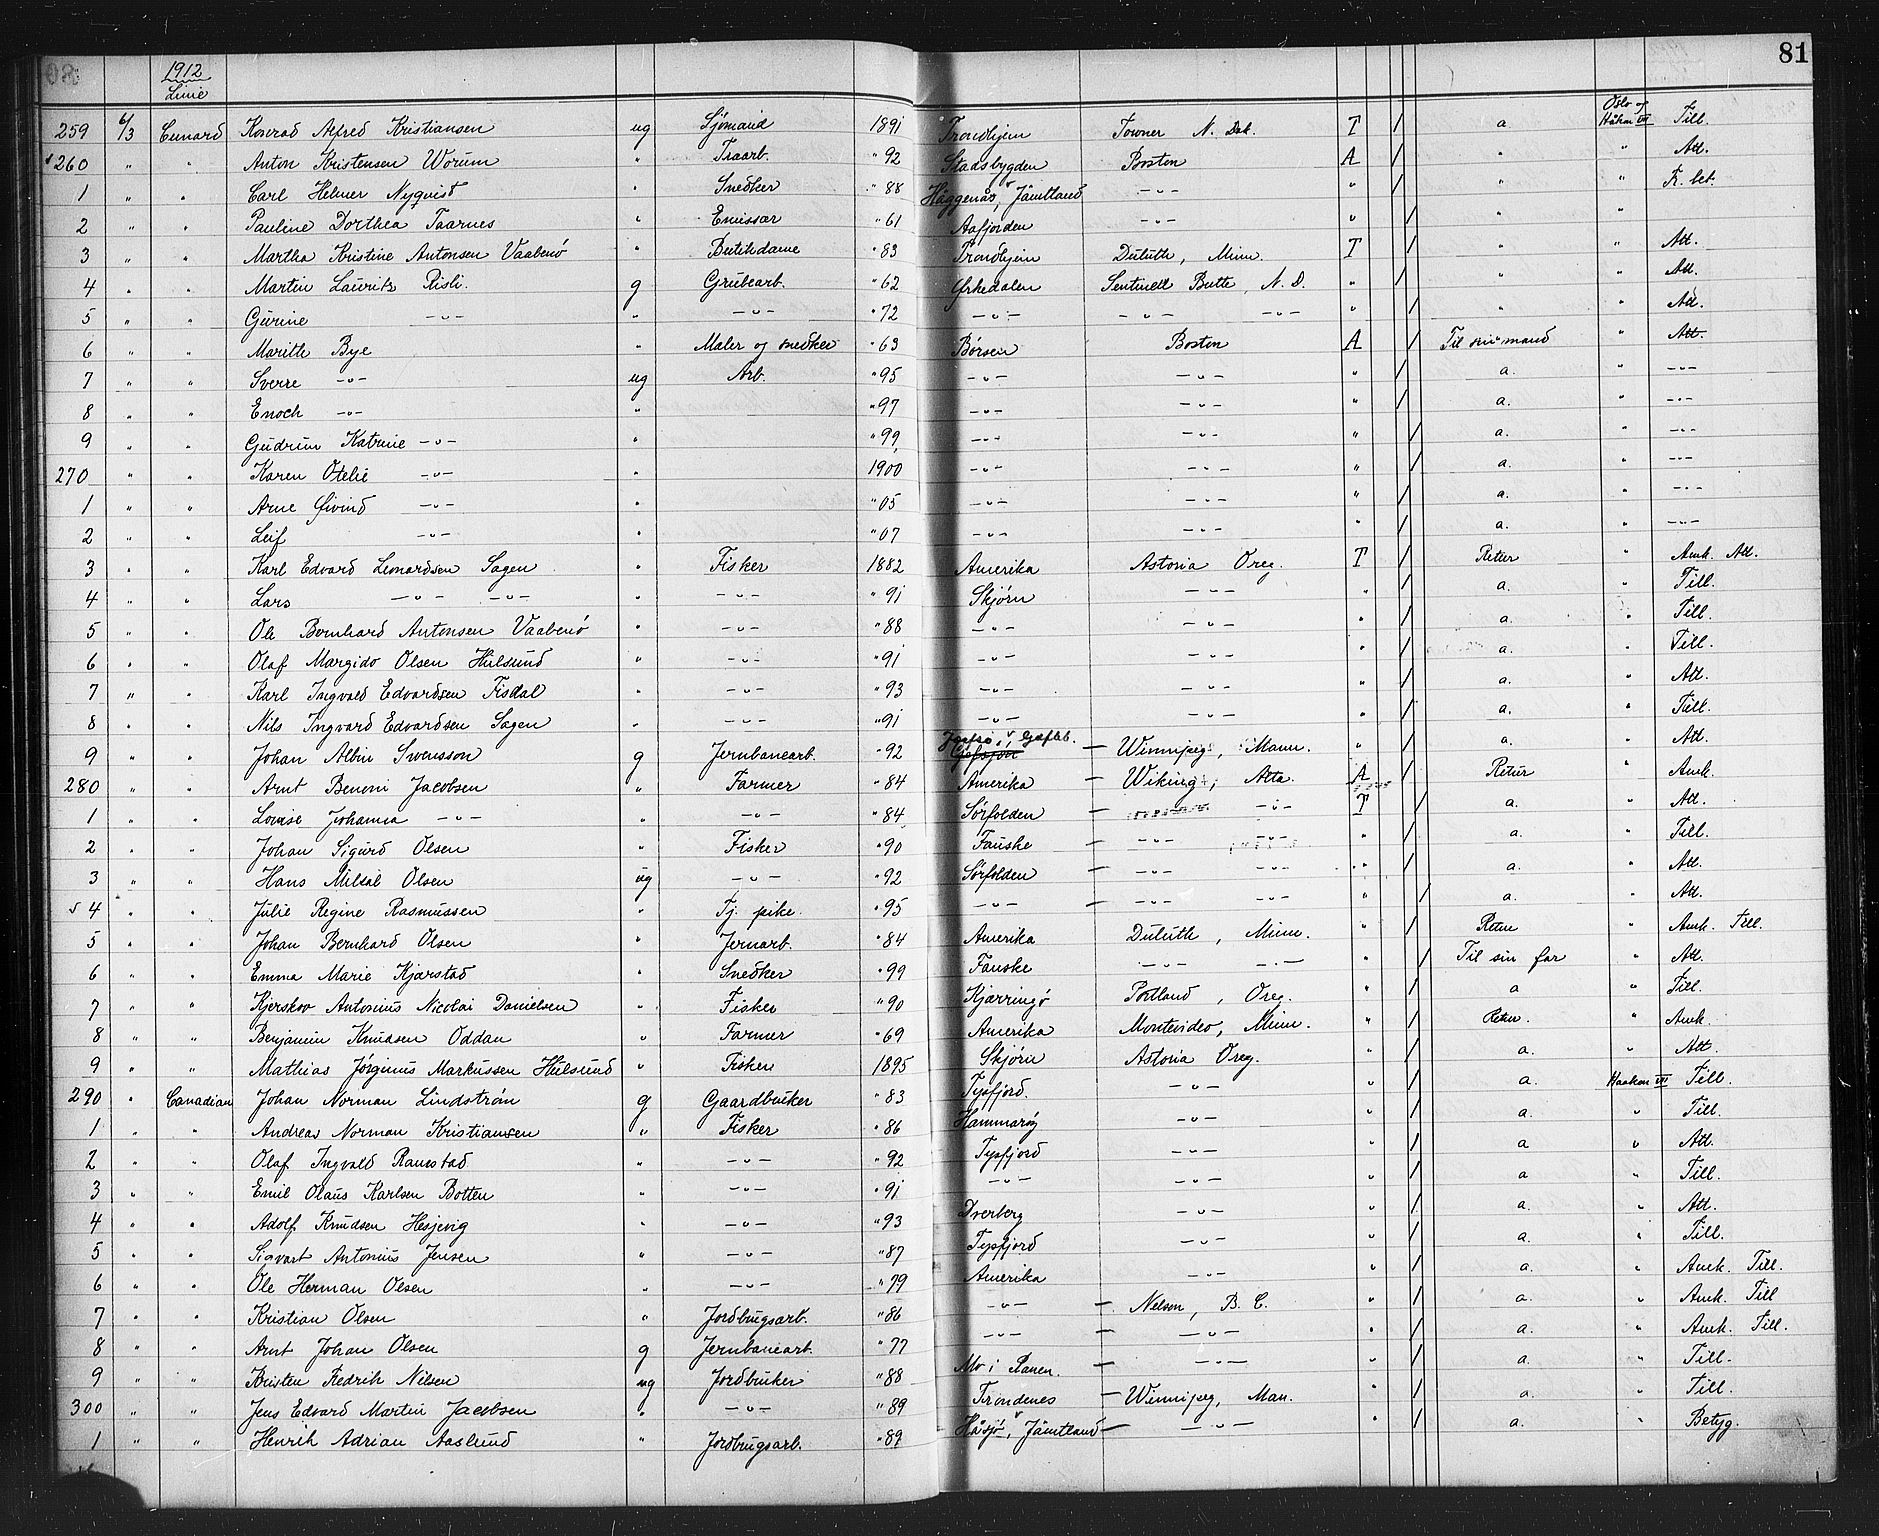 81
1912
Linie
259 6/3 Cunard Konrad Alfred Kristiansen ug Sjömand 1891 Trondhjem Towner N. Dak. T / a. Oslo og Håkon VII Till.
260 " " Anton Kristensen Worum " Traarb. " 92 Stadsbygden Boston A / " " Att.
1 " " Carl Helmer Nyqvist " Snedker " 88 Häggenås, Jämtland -"- " / " " Fr. bet.
2 " " Pauline Dorthea Taarnes " Emissær " 61 Aafjorden -"- " / " "
3 " " Martha Kristine Antonsen Vaabenö " Butikdame " 83 Trondhjem Duluth, Minn. T / " " Att.
4 " " Martin Lauritz Risli. g Grubearb. " 62 Ørkedalen Sentinell Butte, N. D. " / " " Att.
5 " " Gurine -"- " -"- " 72 -"- -"- -"- / " " Att.
6 " " Marith Bye " Maler og snedker " 63 Börsen Boston A / Til sin mand " Att.
7 " " Sverre -"- ug Arb. " 95 -"- -"- " / a. " -"-
8 " " Enoch -"- " " 97 -"- -"- " / a. " -"-
9 " " Gudrun Katrine -"- " " 99 -"- -"- " / a. " -"-
270 " " Karen Otelie -"- " 1900 -"- -"- " / a. " -"-
1 " " Arne Øivind -"- " " 05 -"- -"- " / a. " -"-
2 " " Leif -"- " " 07 -"- -"- " / a. " -"-
3 " " Karl Edvard Leonardsen Sagen " Fisker 1882 Amerika Astoria Oreg. T / Retur " Amk. Att.
4 " " Lars -"- -"- " -"- " 91 Skjörn -"- " / a. " Till.
5 " " Ole Bernhard Antonsen Vaabenö " -"- " 88 -"- -"- " / a. " Till.
6 " " Olaf Margido Olsen Hulsund " -"- " 91 -"- -"- " / a. " Till.
7 " " Karl Ingvald Edvardsen Fisdal " -"- " 93 -"- -"- " / a. " Att.
8 " " Nils Ingvard Edvardsen Sagen " -"- " 91 -"- -"- " / a. " Till.
9 " " Johan Albin Svensson g Jernbanearb. " 92 Gefleb. - Winnipeg, Mann. " / a. " Att.
280 " " Arnt Benoni Jacobsen " Farmer " 84 Amerika - Wiking, Alta. A / Retur " Amk.
1 " " Lovise Johanna -"- " -"- " 84 Sørfolden - -"- T / a. " Att.
2 " " Johan Sigurd Olsen " Fisker " 90 Fauske - -"- -"- " / a. " Till.
3 " " Hans Mildal Olsen ug -"- " 92 Sørfolden - -"- -"- " / a. " Att.
4 " " Julie Regine Rasmussen " Tj. pike. " 95 -"- - -"- -"- " / a. " Att.
5 " " Johan Bernhard Olsen " Jernarb. " 84 Amerika Duluth, Minn. " / Retur " Amk. Till.
6 " " Emma Marie Kjærstad " Snedker " 99 Fauske -"- -"- " / Til sin far " Att.
7 " " Kjerskov Antonius Nicolai Danielsen " Fisker " 90 Kjærringø Portland, Oreg. " / a " Till.
8 " " Benjamin Knudsen Oddan " Farmer " 69 Amerika Montevideo, Minn. " / Retur. " Amk.
9 " " Mathias Jörginus Markussen Hulsund " Fisker 1895 Skjörn Astoria Oreg. " / a. " Att.
290 " Canadian Johan Norman Lindström g Gaardbruker " 83 Tysfjord. -"- " / a. Haakon VII Till.
1 " " Andreas Norman Kristiansen " Fisker " 86 Hammarøy -"- " / a. " Till.
2 " " Olaf Ingvald Ranestad " -"- " 92 Tysfjord -"- " / a " Att.
3 " " Emil Olaus Karlsen Botten " -"- " 91 -"- -"- " / a " Till.
4 " " Adolf Knudsen Hesjevig " -"- " 93 Dverberg -"- " / a. " Att.
5 " " Sigvart Antonius Jensen " -"- " 87 Tysfjord -"- " / a. " Till.
6 " " Ole Herman Olsen " -"- " 79 Amerika -"- " / a. " Amk. Till.
7 " " Kristian Olsen " Jordbrugsarb. " 86 -"- - Nelson, B. C. " / a. " Amk. Till
8 " " Arnt Johan Olsen g Jernbanearb. " 77 -"- - -"- " / a. " Amk. Till.
9 " " Kristen Fredrik Nilsen ug Jordbruker " 88 Mo i Ranen. - -"- " / a. " Till.
300 " " Jens Edvard Martin Jacobsen " -"- " 89 Trondenes - Winnipeg, Man. " / a. " Till.
1 " " Henrik Adrian Aaslund " Jordbrugsarb. " 89 Håsjö, Jämtland - -"- " / a. " Betyg.